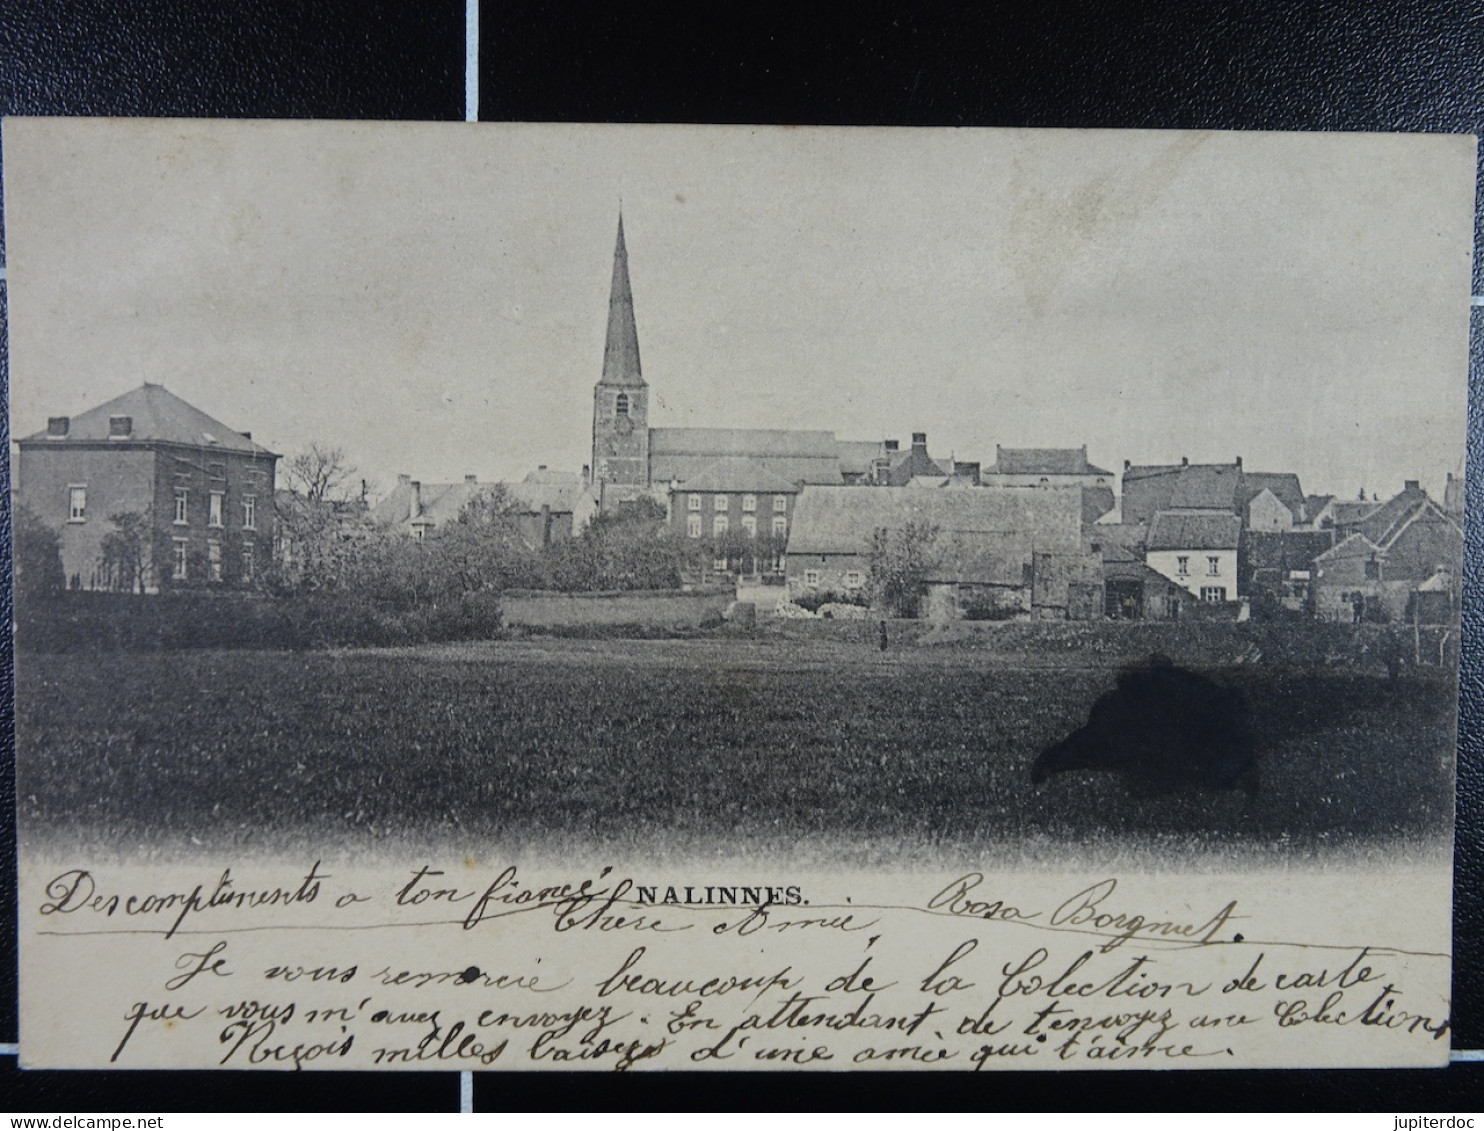 Des compliments a ton fiancé NALINNES. Rosa Borgniet.
Chere Amie,
Je vous remercie beaucoup de la Colection de carte
que vous m'avez envoyez. En attendant de t'envoyez une Colection,
Reçois milles baisers d'une amie qui t'aime.
jupiterdoc